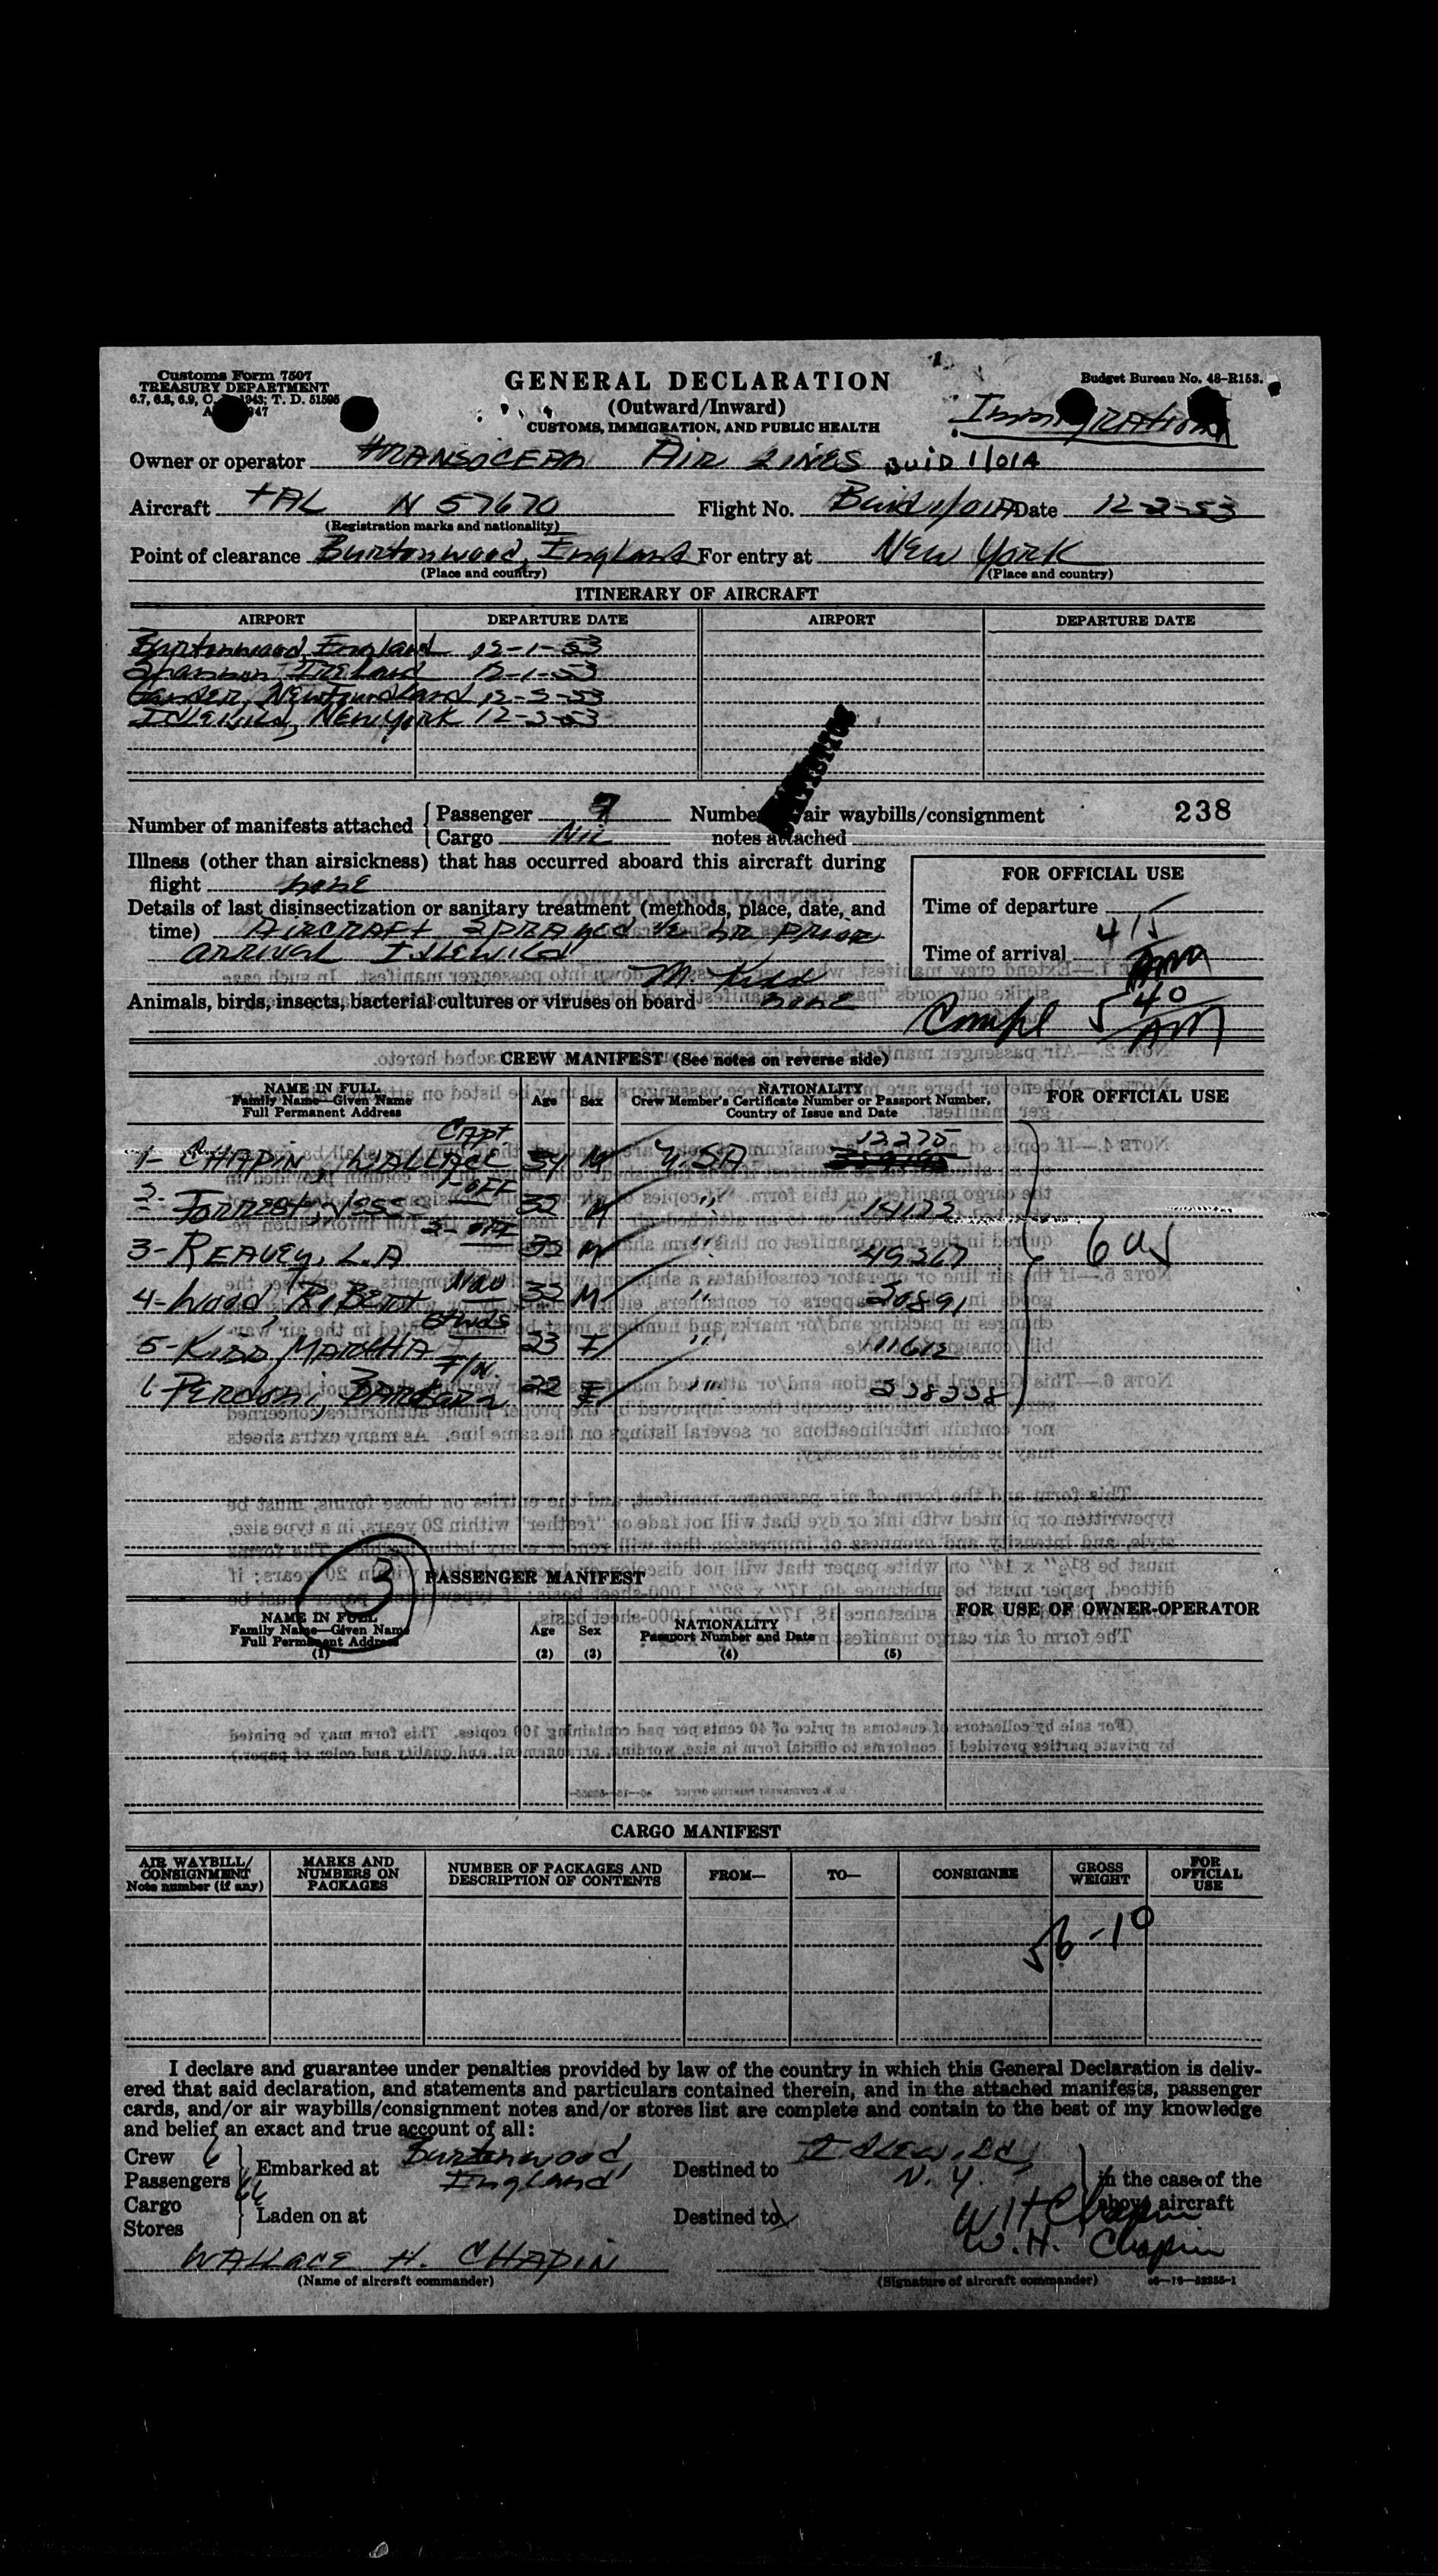 Customs Form 7507
TREASURY DEPARTMENT
GENERAL DECLARATION
(Outward/Inward)
CUSTOMS, IMMIGRATION, AND PUBLIC HEALTH
Budget Bureau No. 48-R153.
Immigration
Owner or operator TRANSOCEAN AIR LINES
Aircraft TAL N 57670 Flight No. Date 12-2-53
(Registration marks and nationality)
Point of clearance Burtonwood, England For entry at New York
(Place and country) (Place and country)
ITINERARY OF AIRCRAFT
AIRPORT DEPARTURE DATE AIRPORT DEPARTURE DATE
Burtonwood, England 12-1-53
Shannon Ireland 12-1-53
Gander, Newfoundland 12-2-53
Idlewild, New York 12-2-53
Number of manifests attached Passenger Number air waybills/consignment 238
Cargo Nil notes attached
Illness (other than airsickness) that has occurred aboard this aircraft during
flight none
FOR OFFICIAL USE
Details of last disinsectization or sanitary treatment (methods, place, date, and
time) Aircraft sprayed ½ hr prior
arrival Idlewild
M. Kidd
Time of departure
Time of arrival 415 AM
Animals, birds, insects, bacterial cultures or viruses on board none
Compl 5 40 AM
CREW MANIFEST (See notes on reverse side)
NAME IN FULL
Family Name—Given Name
Full Permanent Address
Age Sex
NATIONALITY
Crew Member's Certificate Number or Passport Number,
Country of Issue and Date
FOR OFFICIAL USE
1- CHAPIN, WALLACE Capt M U.SA 12275
2- Forrest, Jess 32 M "
3- REAVEY, L.A M " 49267
4- Wood, Robert Nav 33 M " 20891
5- KIDD, MARTHA 23 F "
6 Barbara 22 F " 238238
6 US
3
PASSENGER MANIFEST
NAME IN FULL
Family Name—Given Name
Full Permanent Address
(1)
Age
(2)
Sex
(3)
NATIONALITY
Passport Number and Date
(4) (5)
FOR USE OF OWNER-OPERATOR
CARGO MANIFEST
AIR WAYBILL/
CONSIGNMENT
Note number (if any)
MARKS AND
NUMBERS ON
PACKAGES
NUMBER OF PACKAGES AND
DESCRIPTION OF CONTENTS
FROM—
TO—
CONSIGNEE
GROSS
WEIGHT
FOR
OFFICIAL
USE
I declare and guarantee under penalties provided by law of the country in which this General Declaration is deliv-
ered that said declaration, and statements and particulars contained therein, and in the attached manifests, passenger
cards, and/or air waybills/consignment notes and/or stores list are complete and contain to the best of my knowledge
and belief an exact and true account of all:
Crew 6 Burtonwood Idlewild,
Passengers Embarked at England Destined to N.Y. in the case of the
Cargo above aircraft
Stores Laden on at Destined to
WH Chapin
W.H. Chapin
WALLACE H. CHAPIN
(Name of aircraft commander) (Signature of aircraft commander)